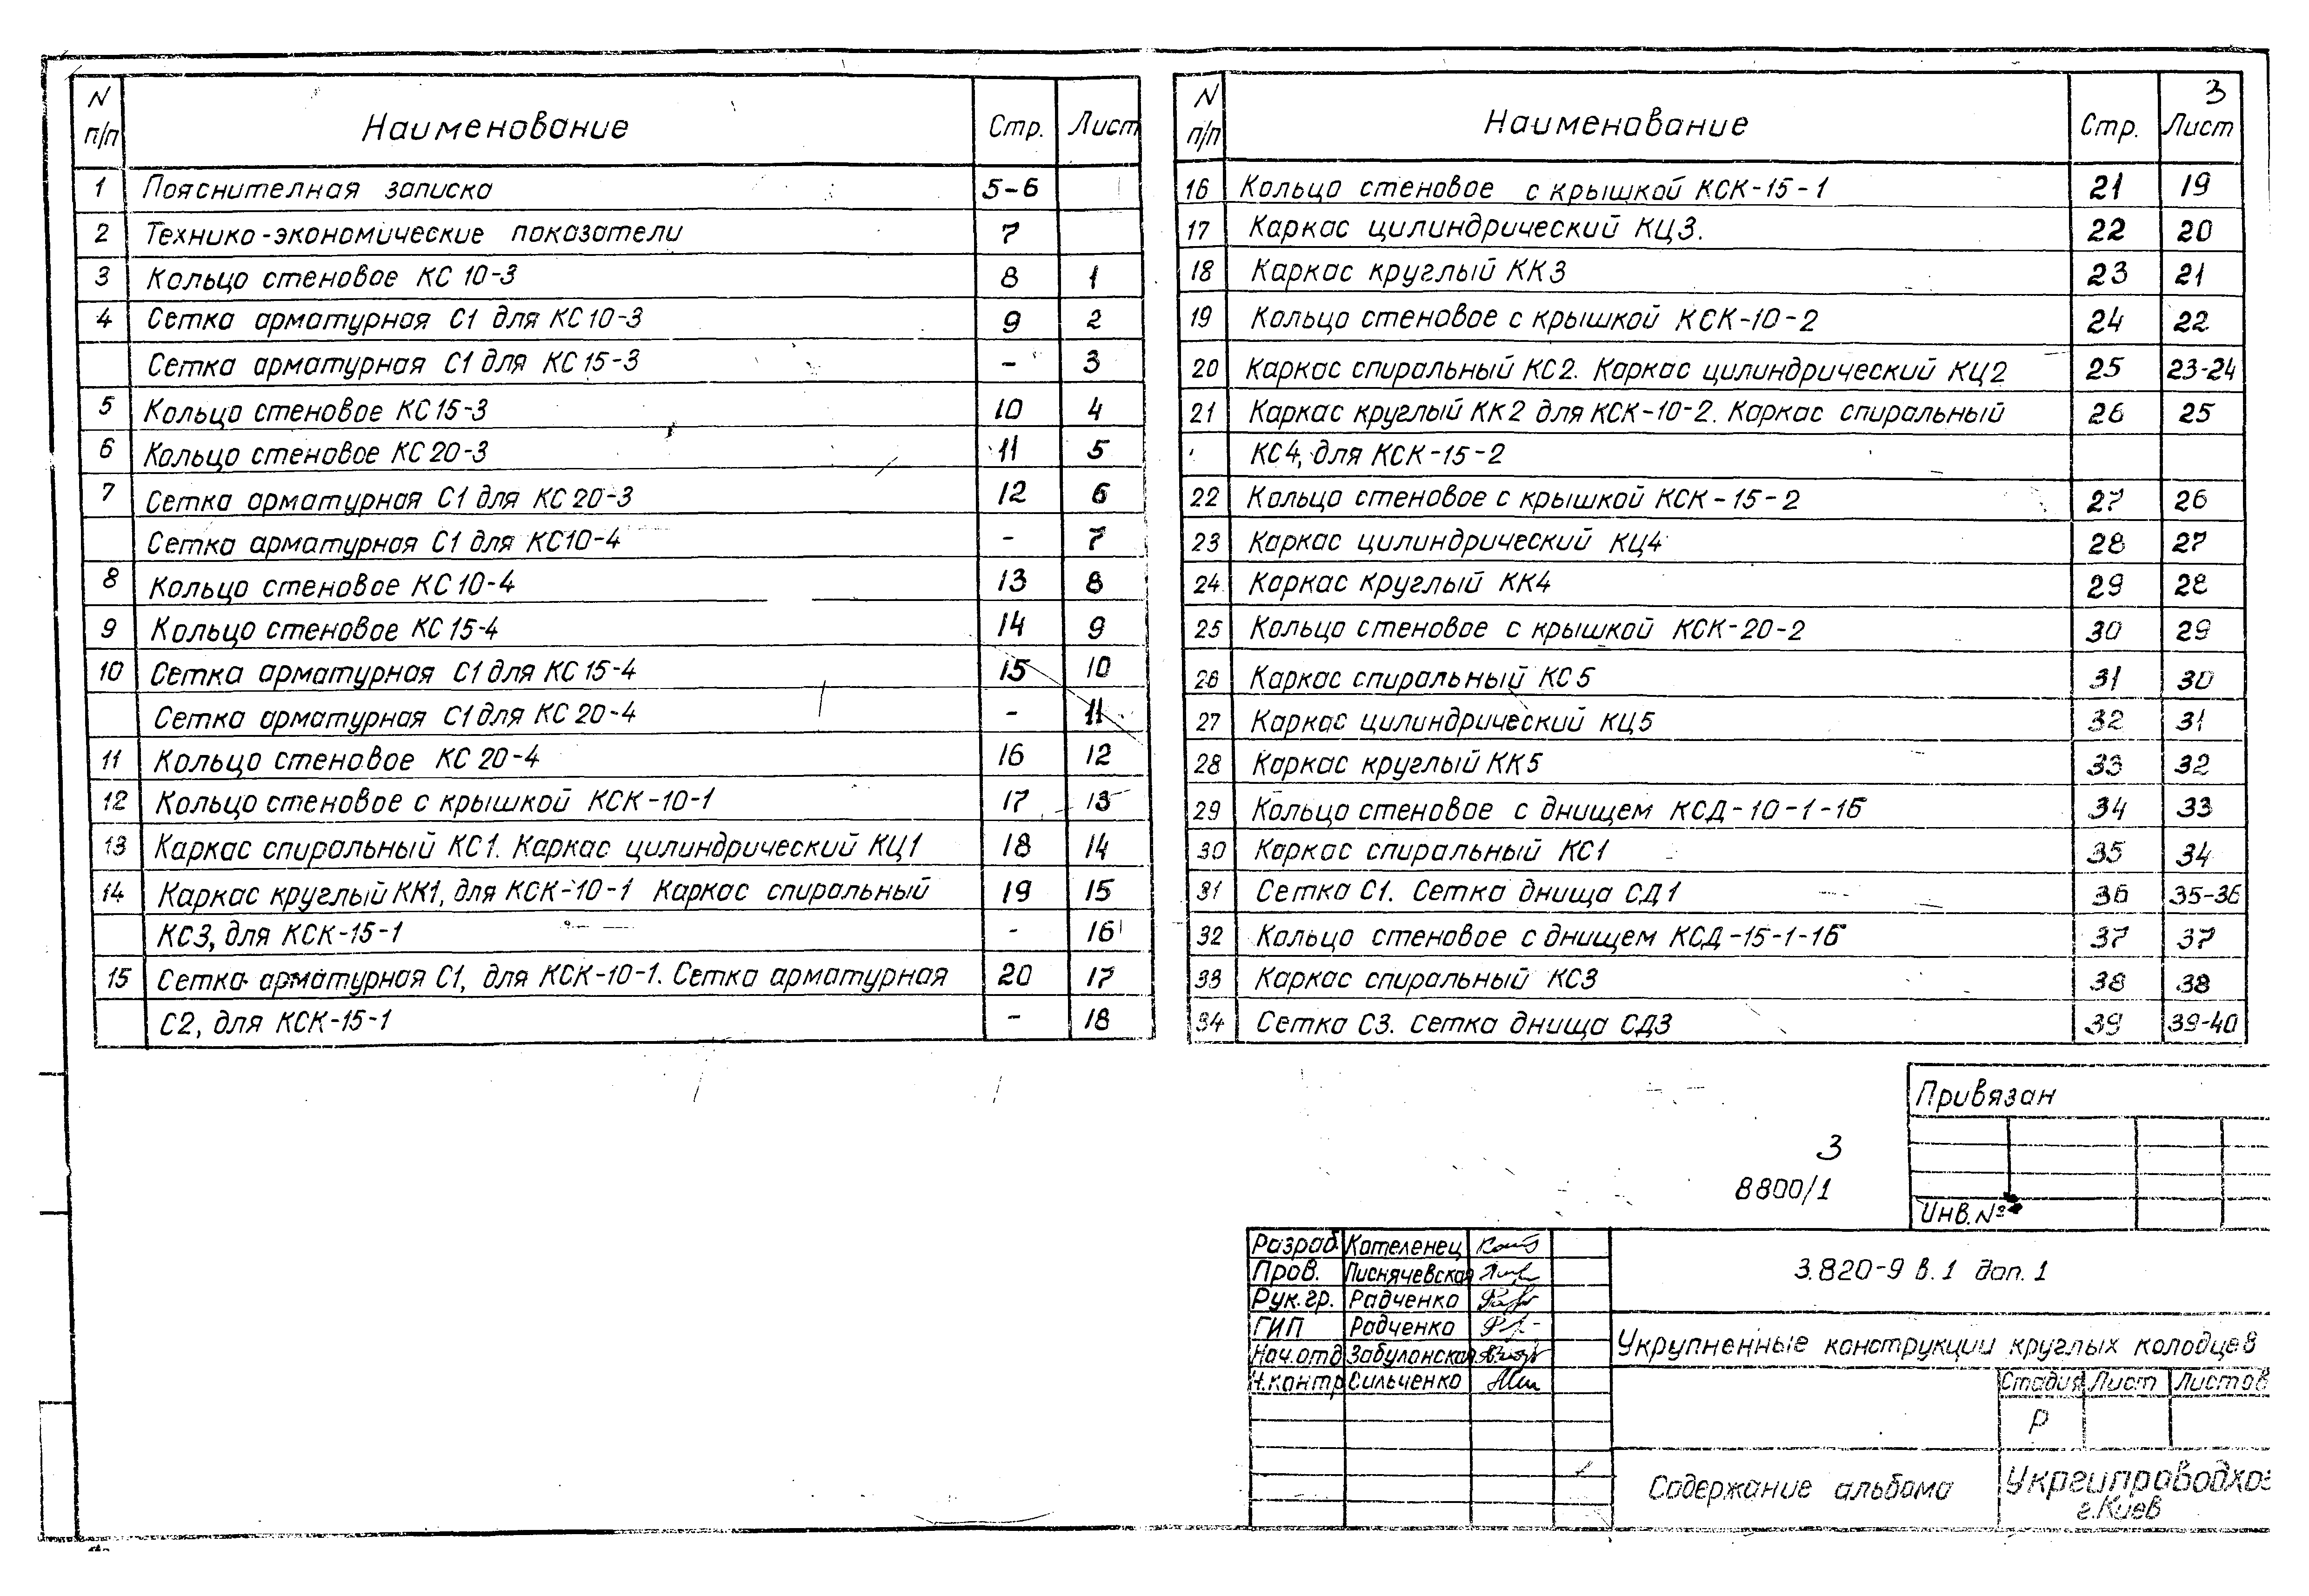 N п/п Наименование Стр. Лист
1 Пояснителная записка 5-6
2 Технико-экономические показатели 7
3 Кольцо стеновое КС 10-3 8 1
4 Сетка арматурная С1 для КС 10-3 9 2
Сетка арматурная С1 для КС 15-3 - 3
5 Кольцо стеновое КС 15-3 10 4
6 Кольцо стеновое КС 20-3 11 5
7 Сетка арматурная С1 для КС 20-3 12 6
Сетка арматурная С1 для КС10-4 - 7
8 Кольцо стеновое КС 10-4 13 8
9 Кольцо стеновое КС 15-4 14 9
10 Сетка арматурная С1 для КС 15-4 15 10
Сетка арматурная С1 для КС 20-4 - 11
11 Кольцо стеновое КС 20-4 16 12
12 Кольцо стеновое с крышкой КСК-10-1 17 13
13 Каркас спиральный КС1. Каркас цилиндрический КЦ1 18 14
14 Каркас круглый КК1, для КСК-10-1 Каркас спиральный 19 15
КС3, для КСК-15-1 - 16
15 Сетка арматурная С1, для КСК-10-1. Сетка арматурная 20 17
С2, для КСК-15-1 - 18
3
N п/п Наименование Стр. Лист
16 Кольцо стеновое с крышкой КСК-15-1 21 19
17 Каркас цилиндрический КЦ3. 22 20
18 Каркас круглый КК3 23 21
19 Кольцо стеновое с крышкой КСК-10-2 24 22
20 Каркас спиральный КС2. Каркас цилиндрический КЦ2 25 23-24
21 Каркас круглый КК2 для КСК-10-2. Каркас спиральный 26 25
КС4, для КСК-15-2
22 Кольцо стеновое с крышкой КСК-15-2 27 26
23 Каркас цилиндрический КЦ4 28 27
24 Каркас круглый КК4 29 28
25 Кольцо стеновое с крышкой КСК-20-2 30 29
26 Каркас спиральный КС5 31 30
27 Каркас цилиндрический КЦ5 32 31
28 Каркас круглый КК5 33 32
29 Кольцо стеновое с днищем КСД-10-1-1Б 34 33
30 Каркас спиральный КС1 35 34
31 Сетка С1. Сетка днища СД1 36 35-36
32 Кольцо стеновое с днищем КСД-15-1-1Б 37 37
33 Каркас спиральный КС3 38 38
34 Сетка С3. Сетка днища СД3 39 39-40
Привязан
Инв. №
3
8800/1
Разраб. Кателенец
Пров. Лиснячевская
Рук. гр. Радченко
ГИП Радченко
Нач. отд Забулонская
Н. контр Сильченко
3.820-9 в.1 доп.1
Укрупненные конструкции круглых колодцев
Стадия Лист Листов
Р
Содержание альбома
Укргипроводхоз
г. Киев